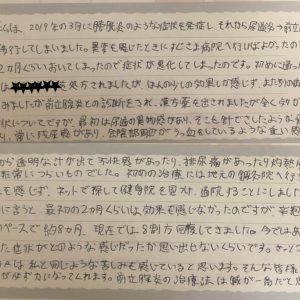 は、2019年の3月に膀胱炎のような症状を発症し、それから尿道炎→前立
移行してしまいました。異常を感じたときすぐさま病院へ行けばよかったので
2カ月くらいおいてしまったので症状が悪化してしまったのです。初めに通った
は を処方されましたが ほんの少しの効果しか感じず、また別の病
みましたが前立腺炎との診断をされ、漢方薬を出されましたが全く効か
状についてですが、最初は尿道の異物感があり、そこを針でさしたような
り、常に残尿感があり、会陰部周辺がうっ血をしているような重い感
から透明な汁が出て不快感があったり、排尿痛があったり灼熱
非常につらいものでした。初めの治療には地元の鍼灸院へ行き
も感じず、ネットで探して健身院を見つけ、通院することにしました
に言うと、最初の2カ月くらいは効果も感じなかったのですが、妥
ペースで約8カ月、現在では8割方回復してきました。今ではあ
た症状がどのような感じだったか思い出せないくらいです。きっとこ
は私と同じような苦しみを感じていると思います。そんな皆様
が必ず力になってくれます。前立腺炎の治療法は鍼が一番だと思